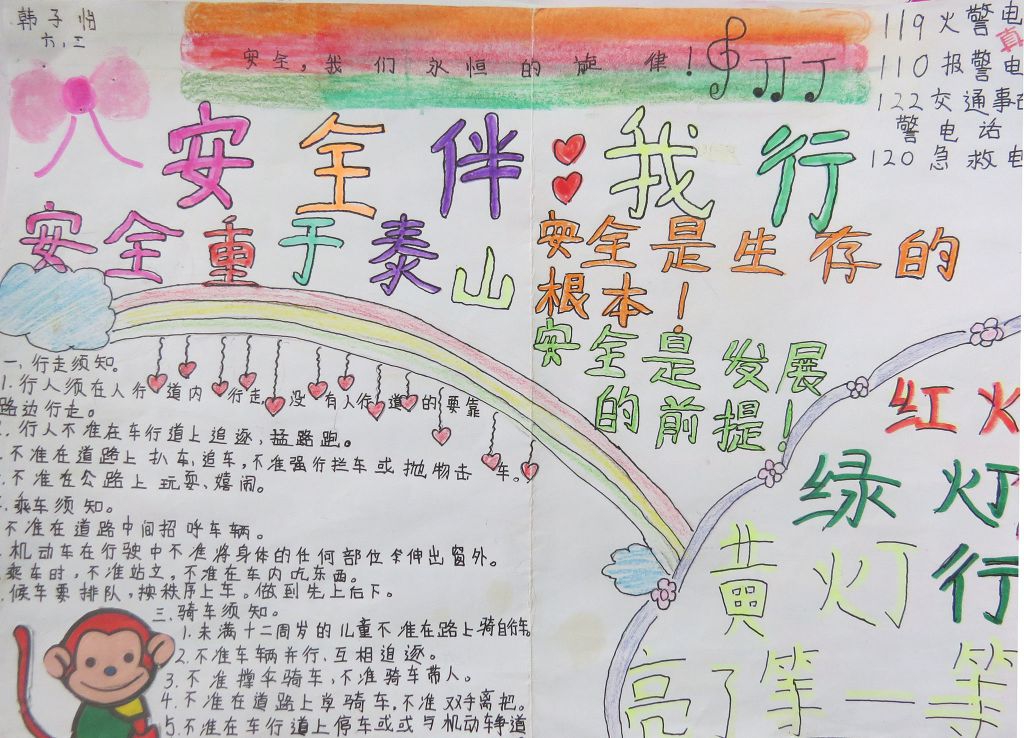 韩子怡
六.二
安全,我们永恒的旋律!
119火警电
110报警电
122交通事故
警电话
120急救电
真
安全伴我行
安全重于泰山
安全是生存的
根本!
安全是发展
的前提!
一、行走须知。
1.行人须在人行道内行走,没有人行道的要靠
路边行走。
2.行人不准在车行道上追逐、猛路跑。
不准在道路上扒车、追车,不准强行拦车或抛物击车。
不准在公路上玩耍、嬉闹。
乘车须知。
不准在道路中间招呼车辆。
机动车在行驶中不准将身体的任何部位伸出窗外。
乘车时,不准站立。不准在车内吃东西。
候车要排队,按秩序上车。做到先上后下。
三、骑车须知。
1.未满十二周岁的儿童不准在路上骑自行车。
2.不准车辆并行、互相追逐。
3.不准撑伞骑车,不准骑车带人。
4.不准在道路上学骑车,不准双手离把。
5.不准在车行道上停车或或与机动车争道
红火
绿灯
行
黄灯
亮了等一等